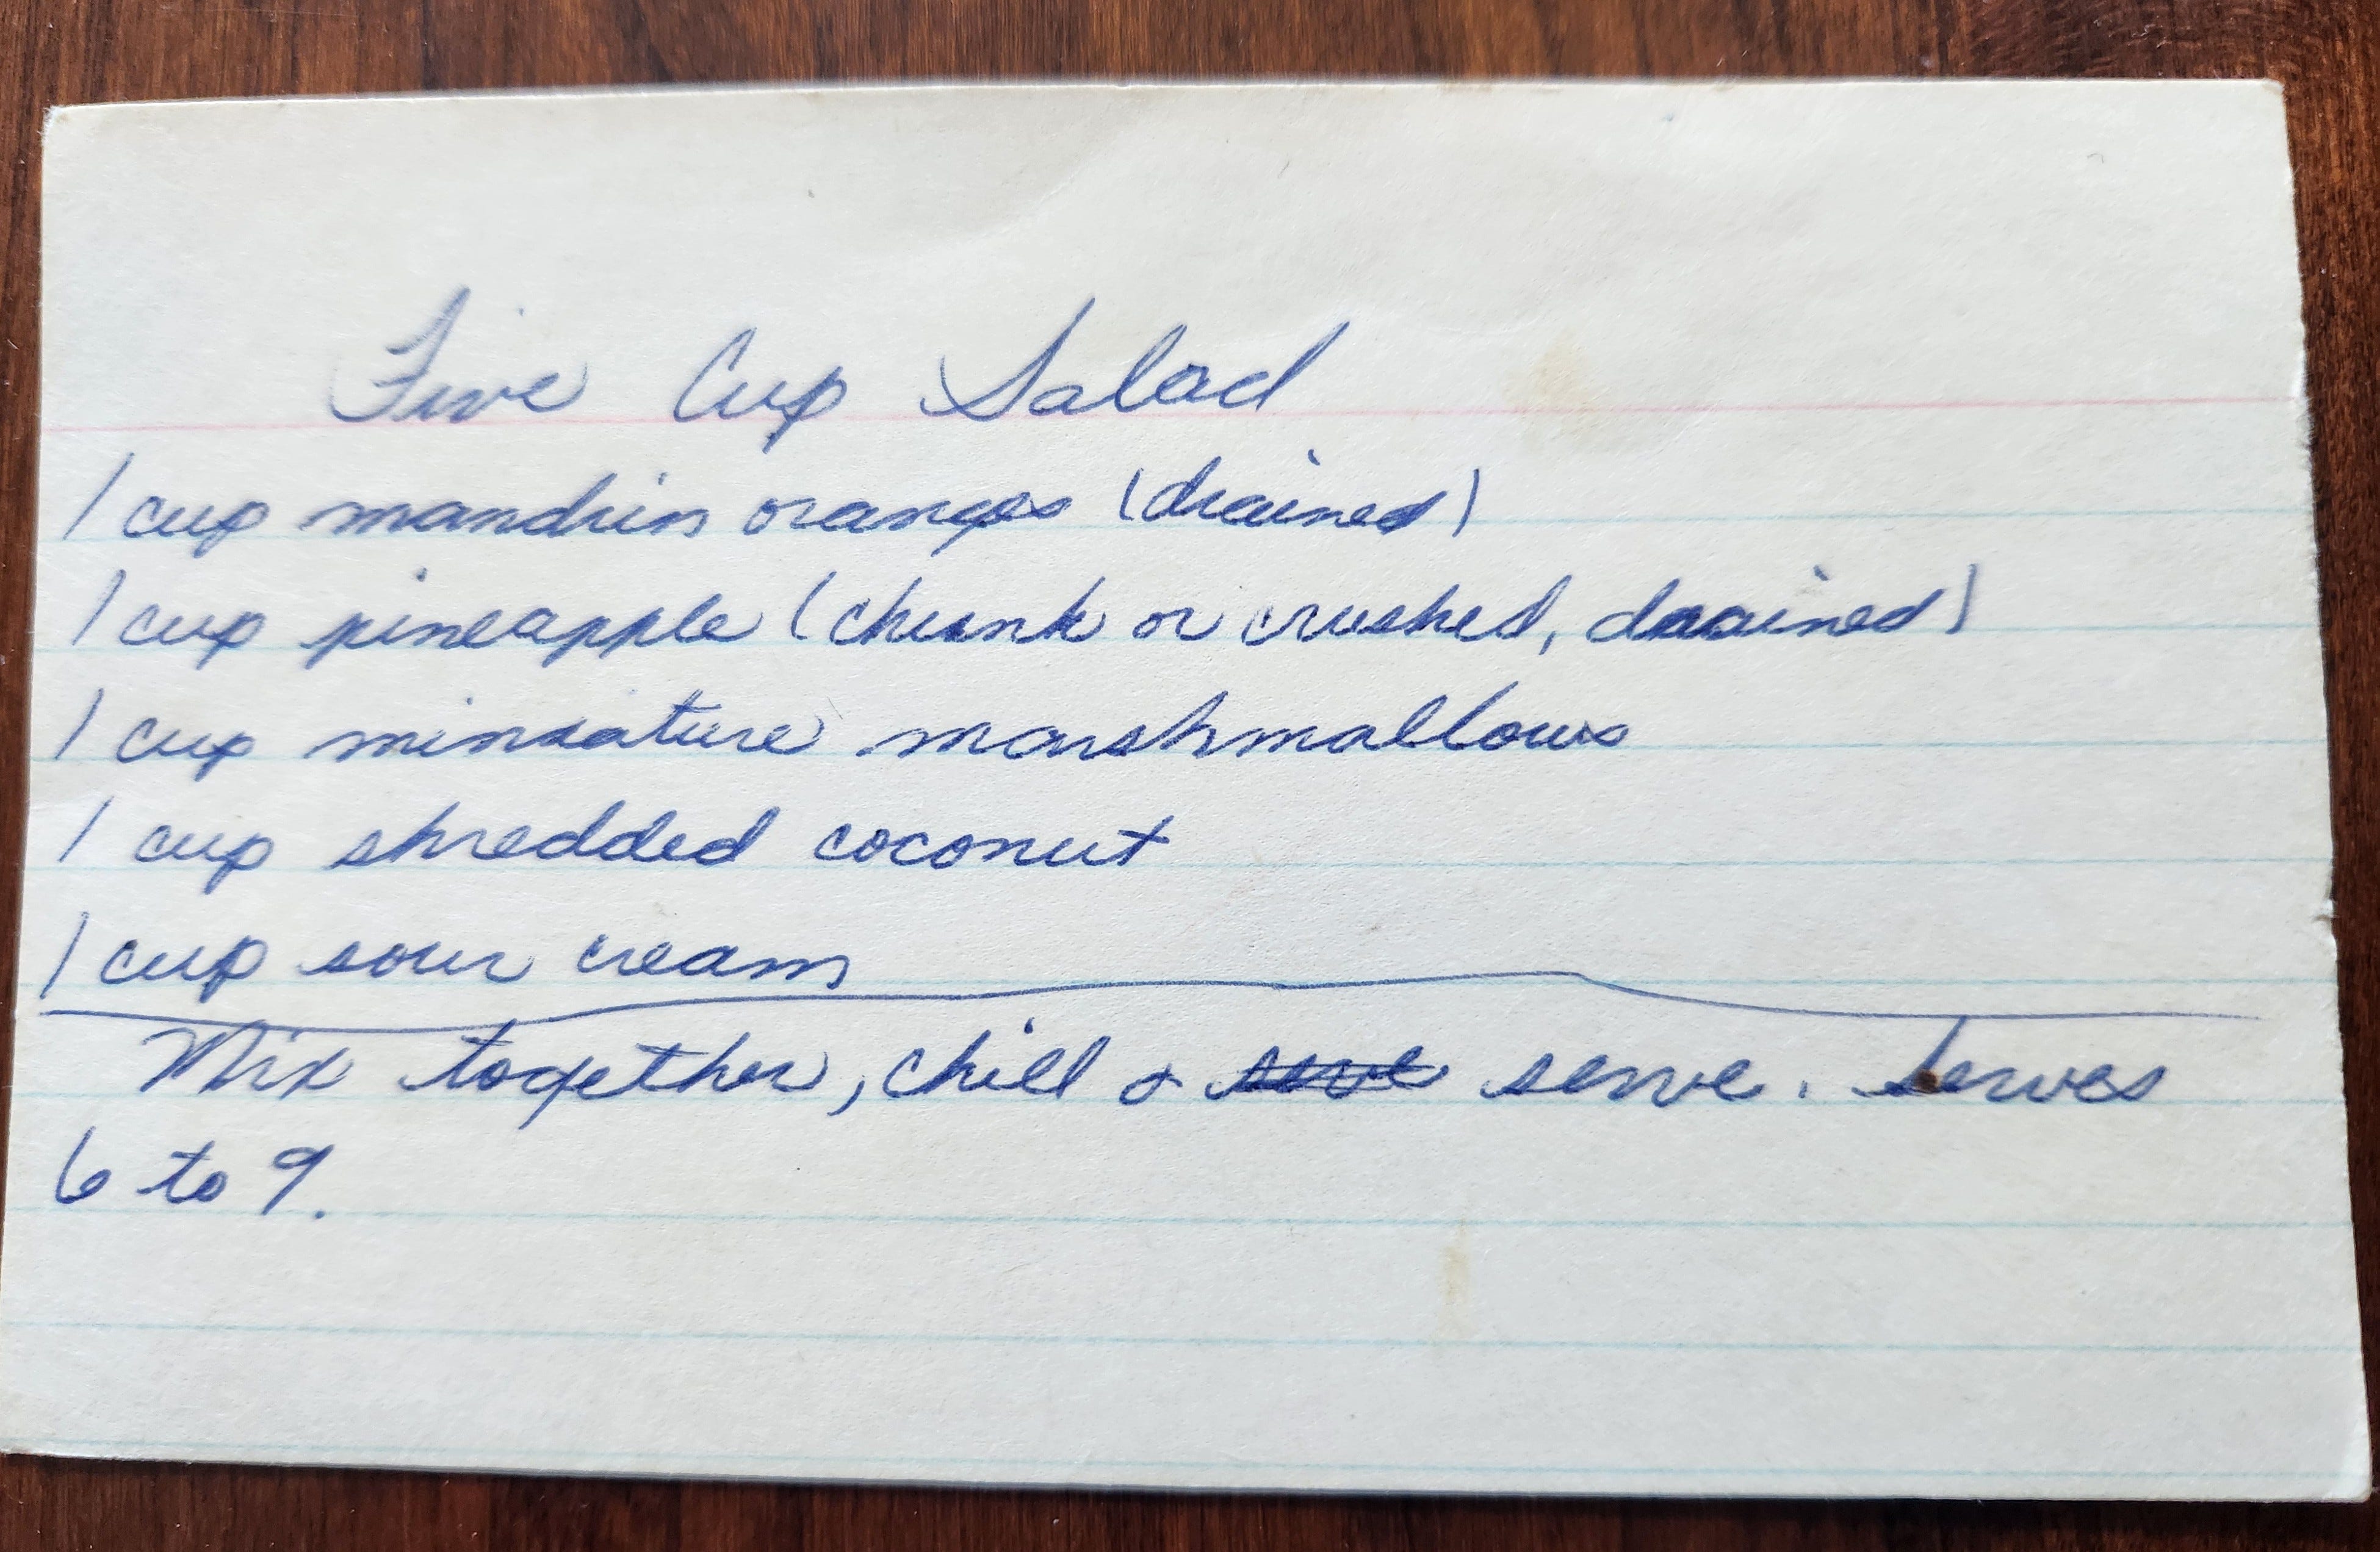 Five Cup Salad
1 cup mandrin oranges (drained)
1 cup pineapple (chunk or crushed, drained)
1 cup miniature marshmallows
1 cup shredded coconut
1 cup sour cream
Mix together, chill & serve. Serves
6 to 9.